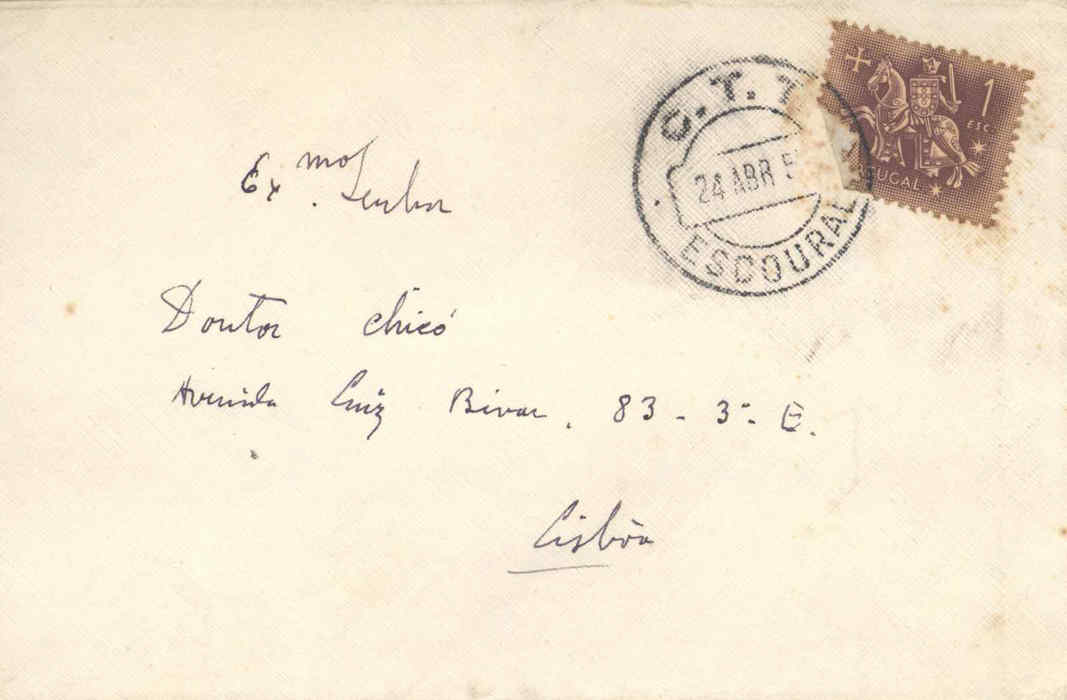 C.T.T.
24 ABR 5
ESCOURAL
1
ESC.
TUGAL
Ex.mo Senhor
Doutor Chicó
Avenida Luiz Bivar, 83-3º E.
Lisbôa